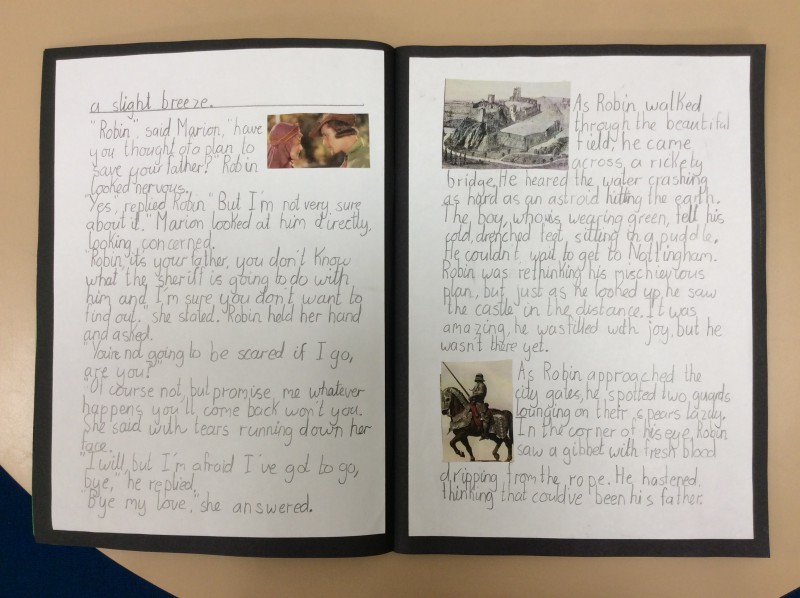 a slight breeze.
"Robin", said Marion, "have
you thought of a plan to
save your father?" Robin
looked nervous.
"Yes", replied Robin. "But I'm not very sure
about it." Marion looked at him directly,
looking concerned.
"Robin, it's your father, you don't know
what the sheriff is going to do with
him and I'm sure you don't want to
find out." she stated. Robin held her hand
and asked.
"You're not going to be scared if I go,
are you?"
"Of course not, but promise me whatever
happens you'll come back won't you.
She said with tears running down her
face.
"I will, but I'm afraid I've got to go,
bye," he replied.
"Bye my love," she answered.
As Robin walked
through the beautiful
field, he came
across a rickety
bridge. He heared the water crashing
as hard as an astroid hitting the earth.
The boy, who is wearing green, fell his
cold, drenched feet, sitting on a puddle.
He couldn't wait to get to Nottingham.
Robin was rethinking his mischievious
plan, but just as he looked up he saw
the castle in the distance. It was
amazing, he was filled with joy, but he
wasn't there yet.
As Robin approached the
city gates, he spotted two guards
lounging on their spears lazily.
In the corner of his eye, Robin
saw a gibbet with fresh blood
dripping from the rope. He hastened
thinking that could've been his father.